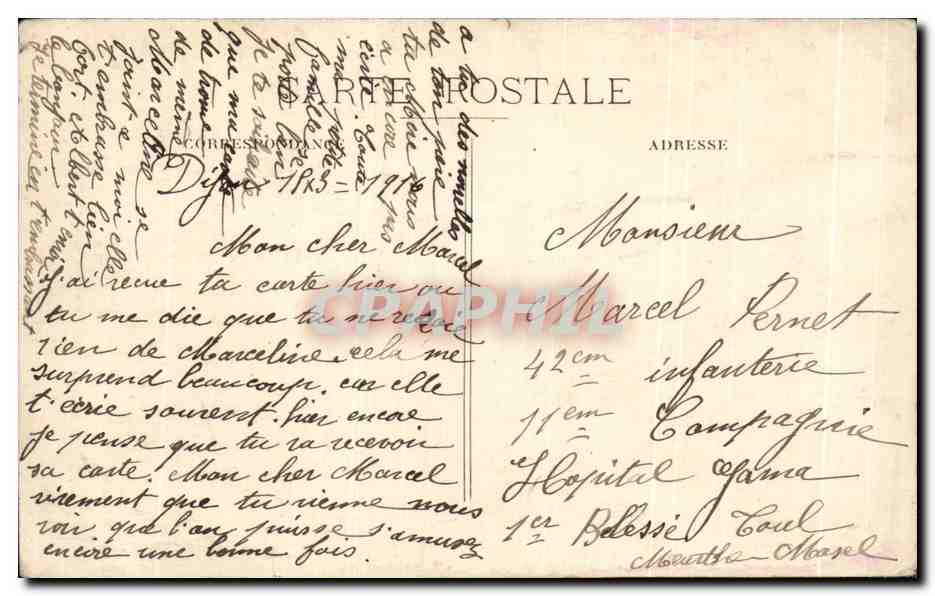 CARTE POSTALE
CORRESPONDANCE
ADRESSE
Dijon 1916
Mon cher Marcel
j'ai recue ta carte hier ou
tu me die que tu ne recoie
rien de Marceline. cela me
surprend beaucoup. car elle
t'écrie souvent. hier encore
je pense que tu va recevoir
sa carte. Mon cher Marcel
virement que tu vienne nous
voir que l'on puisse s'amusez
encore une bonne fois.
a tu des nouvelles
de ton
ta Mère nous
a encore pas
écrit. toute
ma petite
famille
porte bien
je te souhaite
que ma carte
te trouve
de même
Marceline se
joint a moi elle
t embrasse bien
fort. et Albert
je termine en t'embrassant
Monsieur
Marcel Pernet
42em infanterie
11em Compagnie
Hopital Gama
1er Blessé Toul
Meurthe Mosel
CPAPHIL